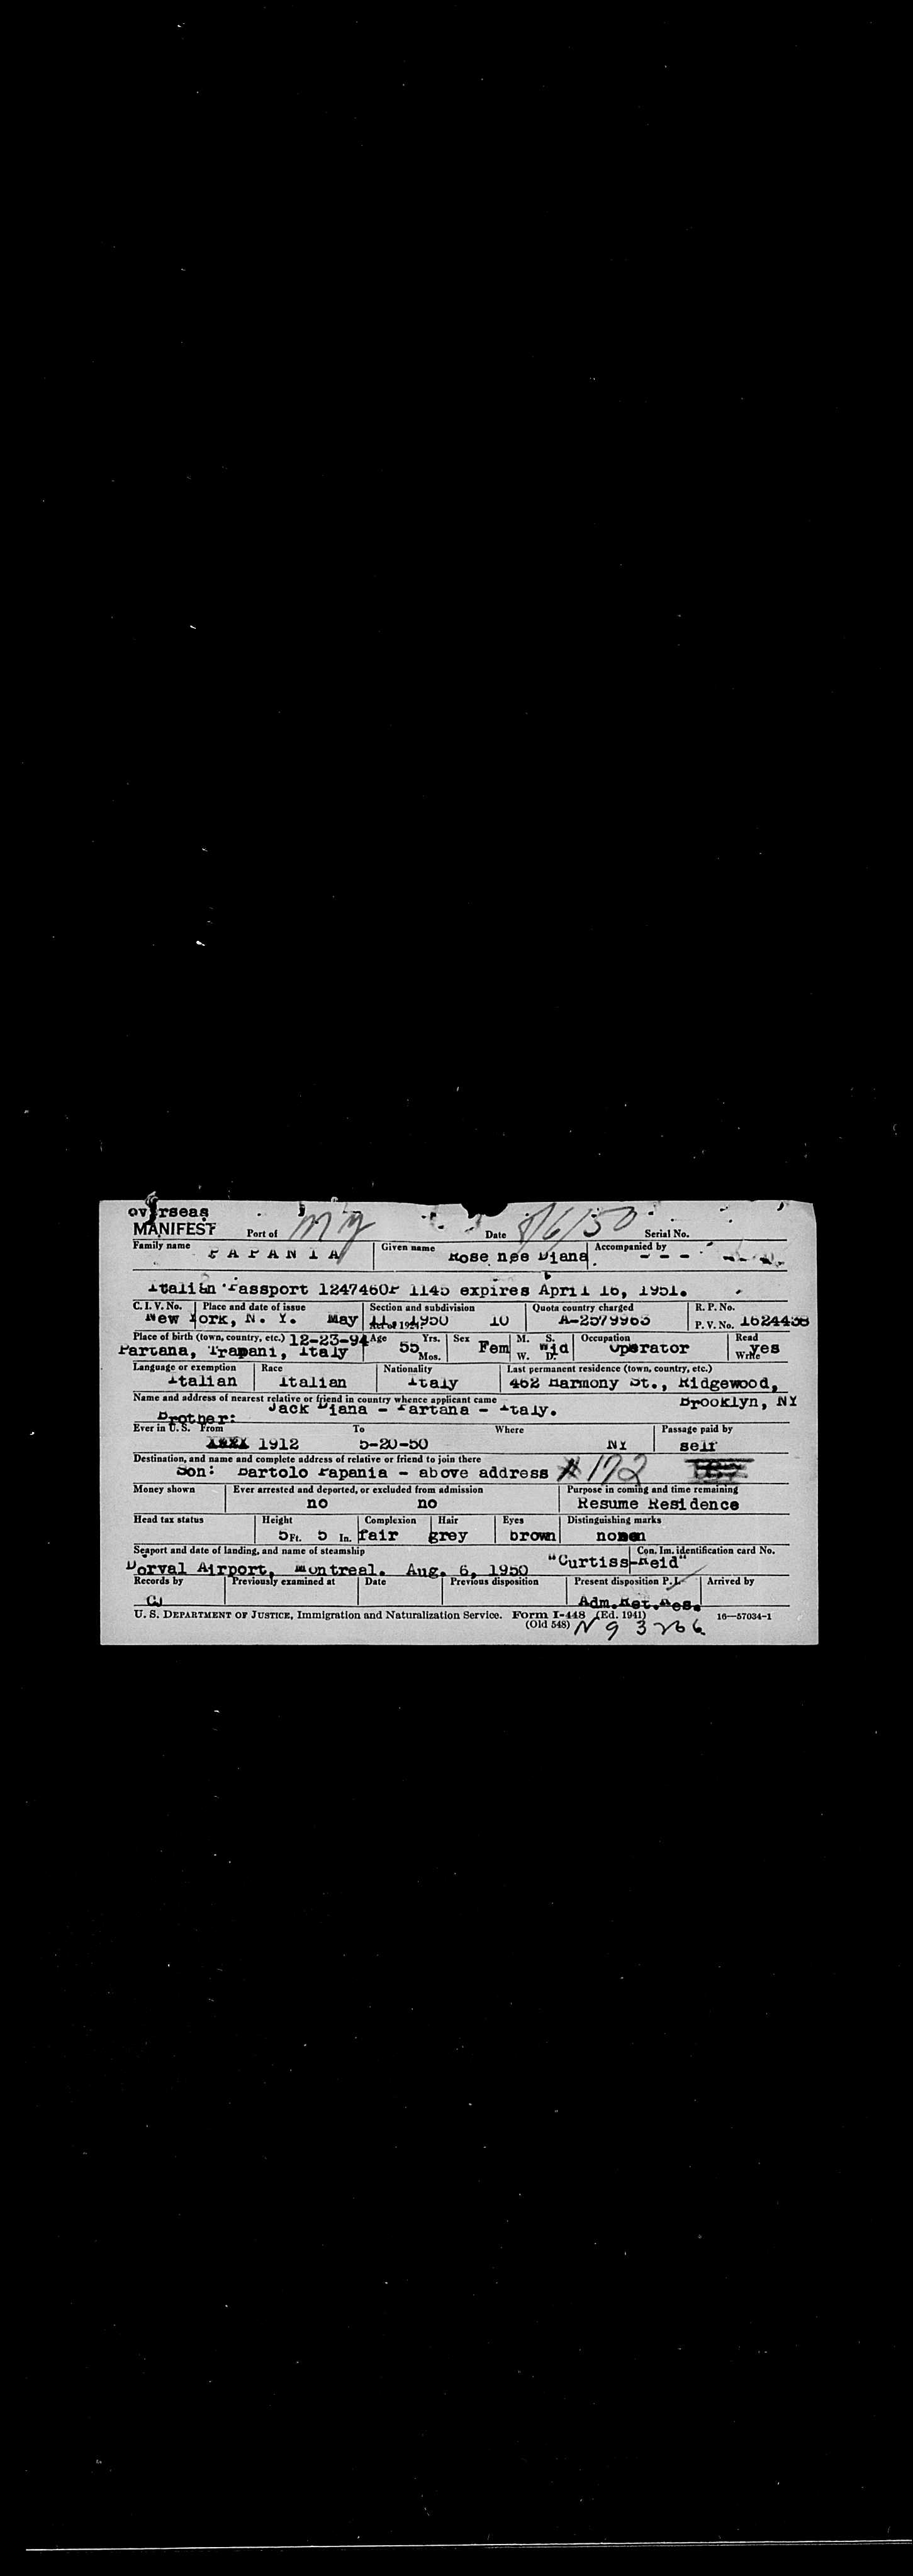 overseas
MANIFEST Port of Date 8/6/50 Serial No.
Family name PAPANIA Given name Rose nee Diana Accompanied by - - -
Italian Passport 1247460P 1145 expires April 16, 1951.
C. I. V. No. Place and date of issue Section and subdivision Quota country charged R. P. No.
New York, N. Y. May 11, 1950 Act of 1924. 10 A-2579963 P. V. No. 1624438
Place of birth (town, country, etc.) 12-23-94 Age Yrs. Sex M. S. Occupation Read
Partana, Trapani, Italy 55 Mos. Fem W. D. Wid Operator Write yes
Language or exemption Race Nationality Last permanent residence (town, country, etc.)
Italian Italian Italy 462 Harmony St., Ridgewood,
Name and address of nearest relative or friend in country whence applicant came Brooklyn, NY
Brother: Jack Diana - Partana - Italy.
Ever in U. S. From To Where Passage paid by
1912 5-20-50 NY self
Destination, and name and complete address of relative or friend to join there
Son: Bartolo Papania - above address #172
Money shown Ever arrested and deported, or excluded from admission Purpose in coming and time remaining
no no Resume Residence
Head tax status Height Complexion Hair Eyes Distinguishing marks
5 Ft. 5 In. fair grey brown
Seaport and date of landing, and name of steamship Con. Im. identification card No.
Dorval Airport, Montreal. Aug. 6, 1950 "Curtiss-Reid"
Records by Previously examined at Date Previous disposition Present disposition P.I. Arrived by
CJ Adm.Ret.Res.
U. S. DEPARTMENT OF JUSTICE, Immigration and Naturalization Service. Form I-448 (Ed. 1941) 16—57034-1
(Old 548) N 9 3266